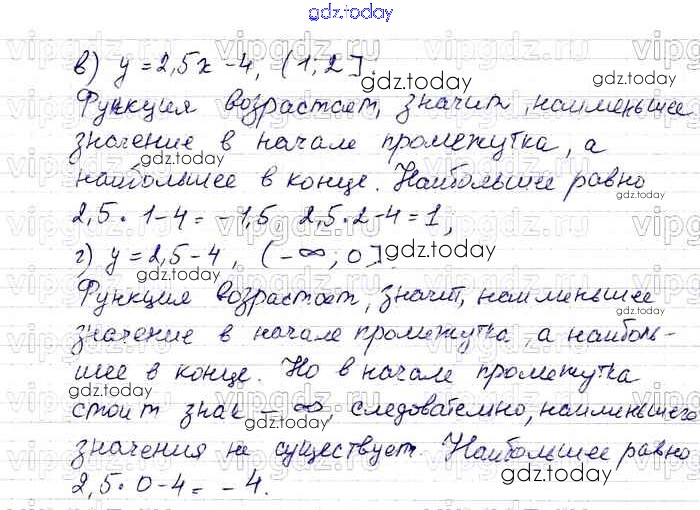 gdz.today
в) y = 2,5x - 4, (1; 2].
gdz.today
Функция возрастает, значит, наименьшее
значение в начале промежутка, а
gdz.today
наибольшее в конце. Наибольшее равно
2,5 · 1 - 4 = -1,5. 2,5 · 2 - 4 = 1,
gdz.today
г) y = 2,5 - 4, (-∞; 0]
gdz.today
gdz.today
Функция возрастает, значит, наименьшее
значение в начале промежутка, а наиболь-
шее в конце. Но в начале промежутка
gdz.today
стоит знак -∞, следовательно, наименьшего
gdz.today
значения не существует. Наибольшее равно
gdz.today
2,5 · 0 - 4 = -4.